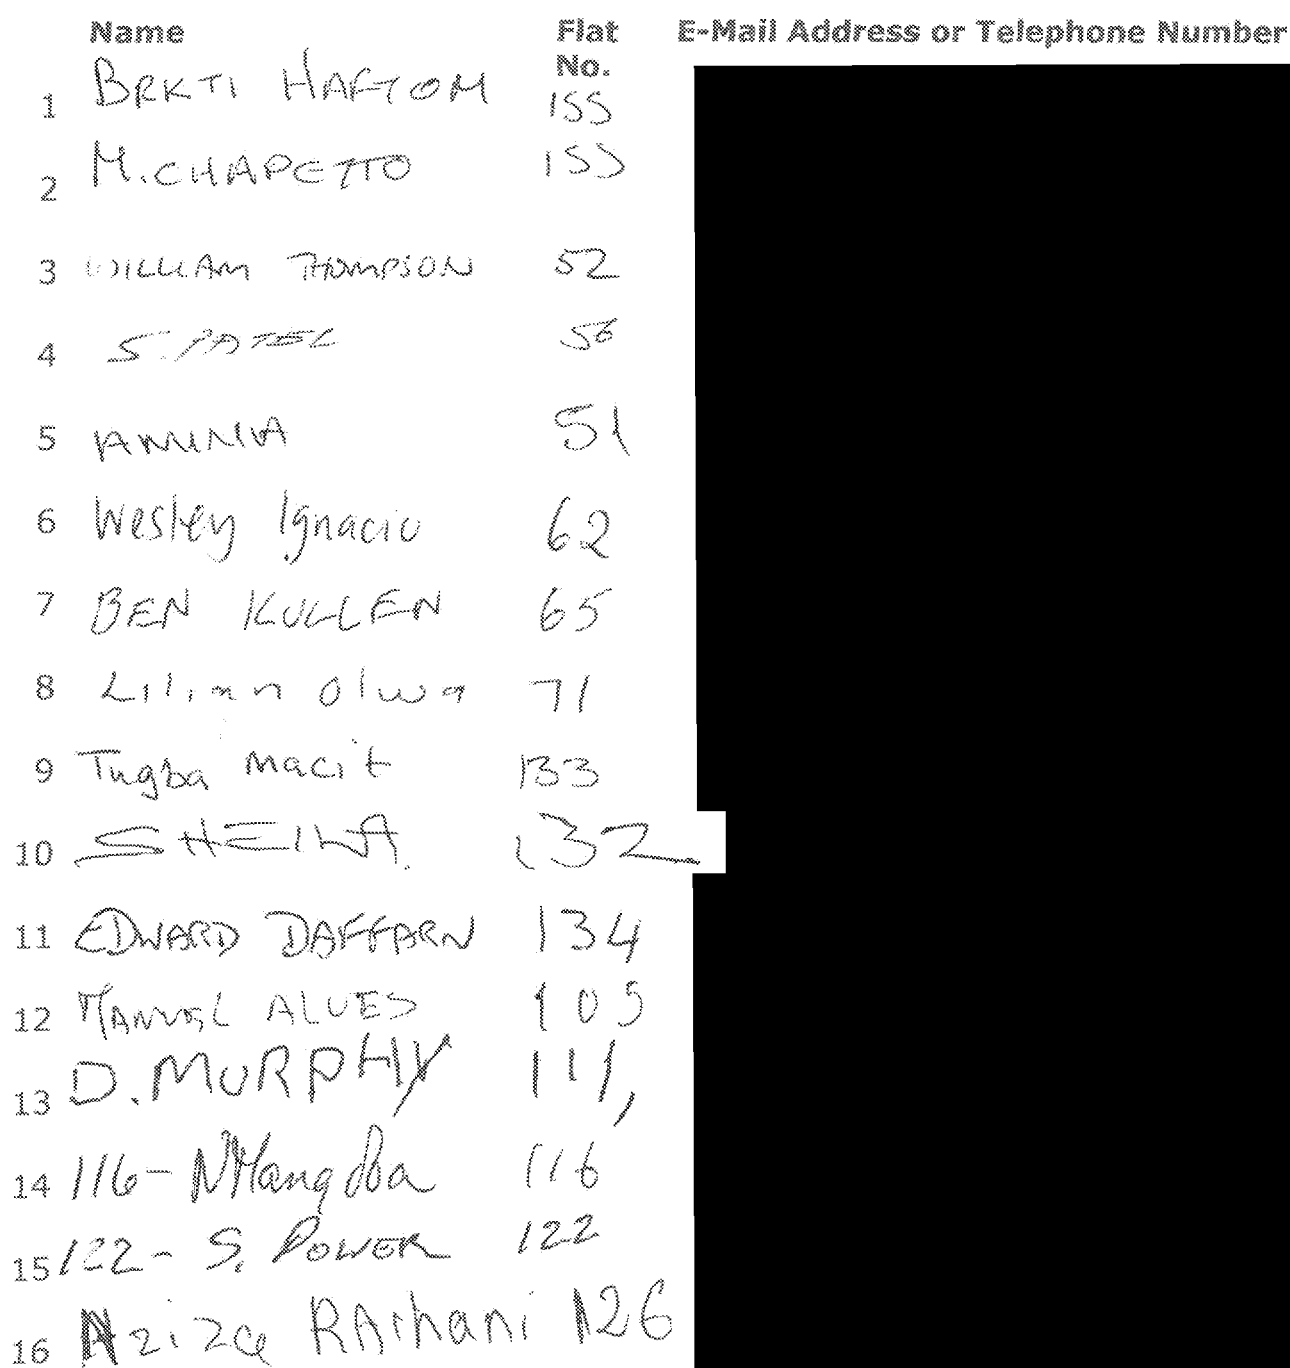 Name Flat No. E-Mail Address or Telephone Number
1 BRKTI HAFTOM 155
2 M. CHAPETTO 155
3 WILLIAM THOMPSON 52
4 S. PATEL 56
5 51
6 Wesley Ignacio 62
7 BEN KULLEN 65
8 Lilian Olwa 71
9 Tugba Macit 133
10 SHEILA. 132
11 EDWARD DAFFARN 134
12 MANUEL ALVES 105
13 D. MURPHY 111,
14 116- 116
15 122- S. POWER 122
16 Aziza RAihani 126